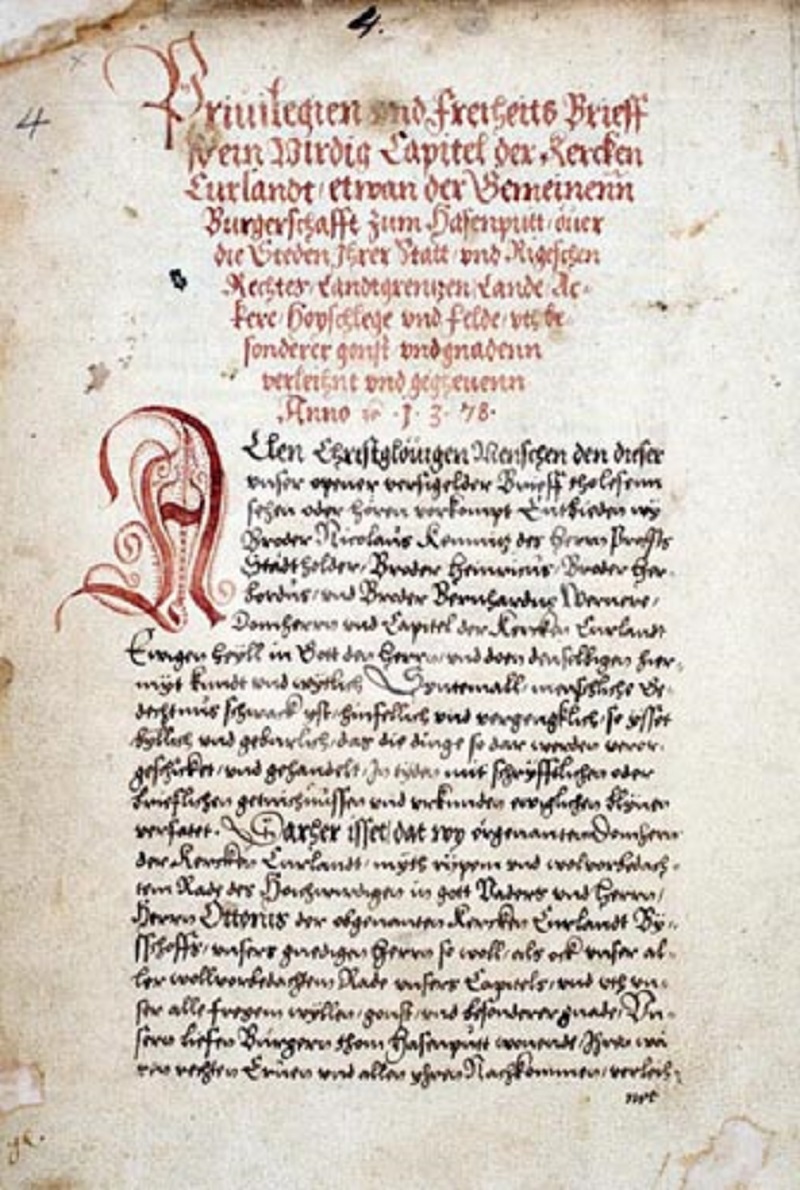 4.
4
Priuilegien vnd Freiheits Brieff
ein Wirdig Capitel der Kercken
Curlandt, etwan der Gemeinenn
Burgerschafft zum Hasenputt, ouer
die Steden Jhrer Statt, vnd Rigeschen
Rechtes, Landtgrentzen, Lande, Ac-
kere, Hoyschlege vnd Felde, vth be-
sonderer gonst vnd gnadenn
verleihnt vnd gegeuenn
Anno 1378.
Allen Christglöuigen Menschen den dieser
vnser opener versigelder Brieff tholesenn
sehen oder hören vorkompt Entbieden wy
Broder Nicolaus des Herrn Profsts
Stadtholder, Broder Heinricus, Broder Her-
bordus, vnd Broder Bernhardus Wernere,
Domherrn vnd Capitel der Kercken Curlandt
Ewigen heyll in Gott den Herrn, vnd doen denselbigen hier-
myt kundt vnd wytlich Syntemall, menschliche Ge-
dechtnus schwack yst, hinfellich vnd vergengklich, so ysset
byllich vnd geburlich, das die dinge so dar werden veror-
geschicket, vnd gehandelt, In tyden mit schryfftlichen oder
brieflichen getuichnussen vnd vrkunden ewiglichen blyuen
verfatet. Darher isset, dat wy örgenanten Domhern
der Kercken Curlandt, myth rypem vnd wolvorbedach-
tem Rade des Hochwirdigen in gott Vaders vnd Herrn,
Herrn Ottonis der obgenanten Kercken Curlandt By-
sschoffs, vnsers gnedigen Herrn so woll, als ock vnser al-
ler wollvorbedachtem Rade vnsers Capitels, vnd vth vn-
ser alle freyem wyllen, gonst, vnd besonderer gnade, Vn-
sern liefen Burgern thom Hasenputt wonende, Jhren wa-
ren rechten Eruen vnd allen yhren Nachkommen, verleh-
net